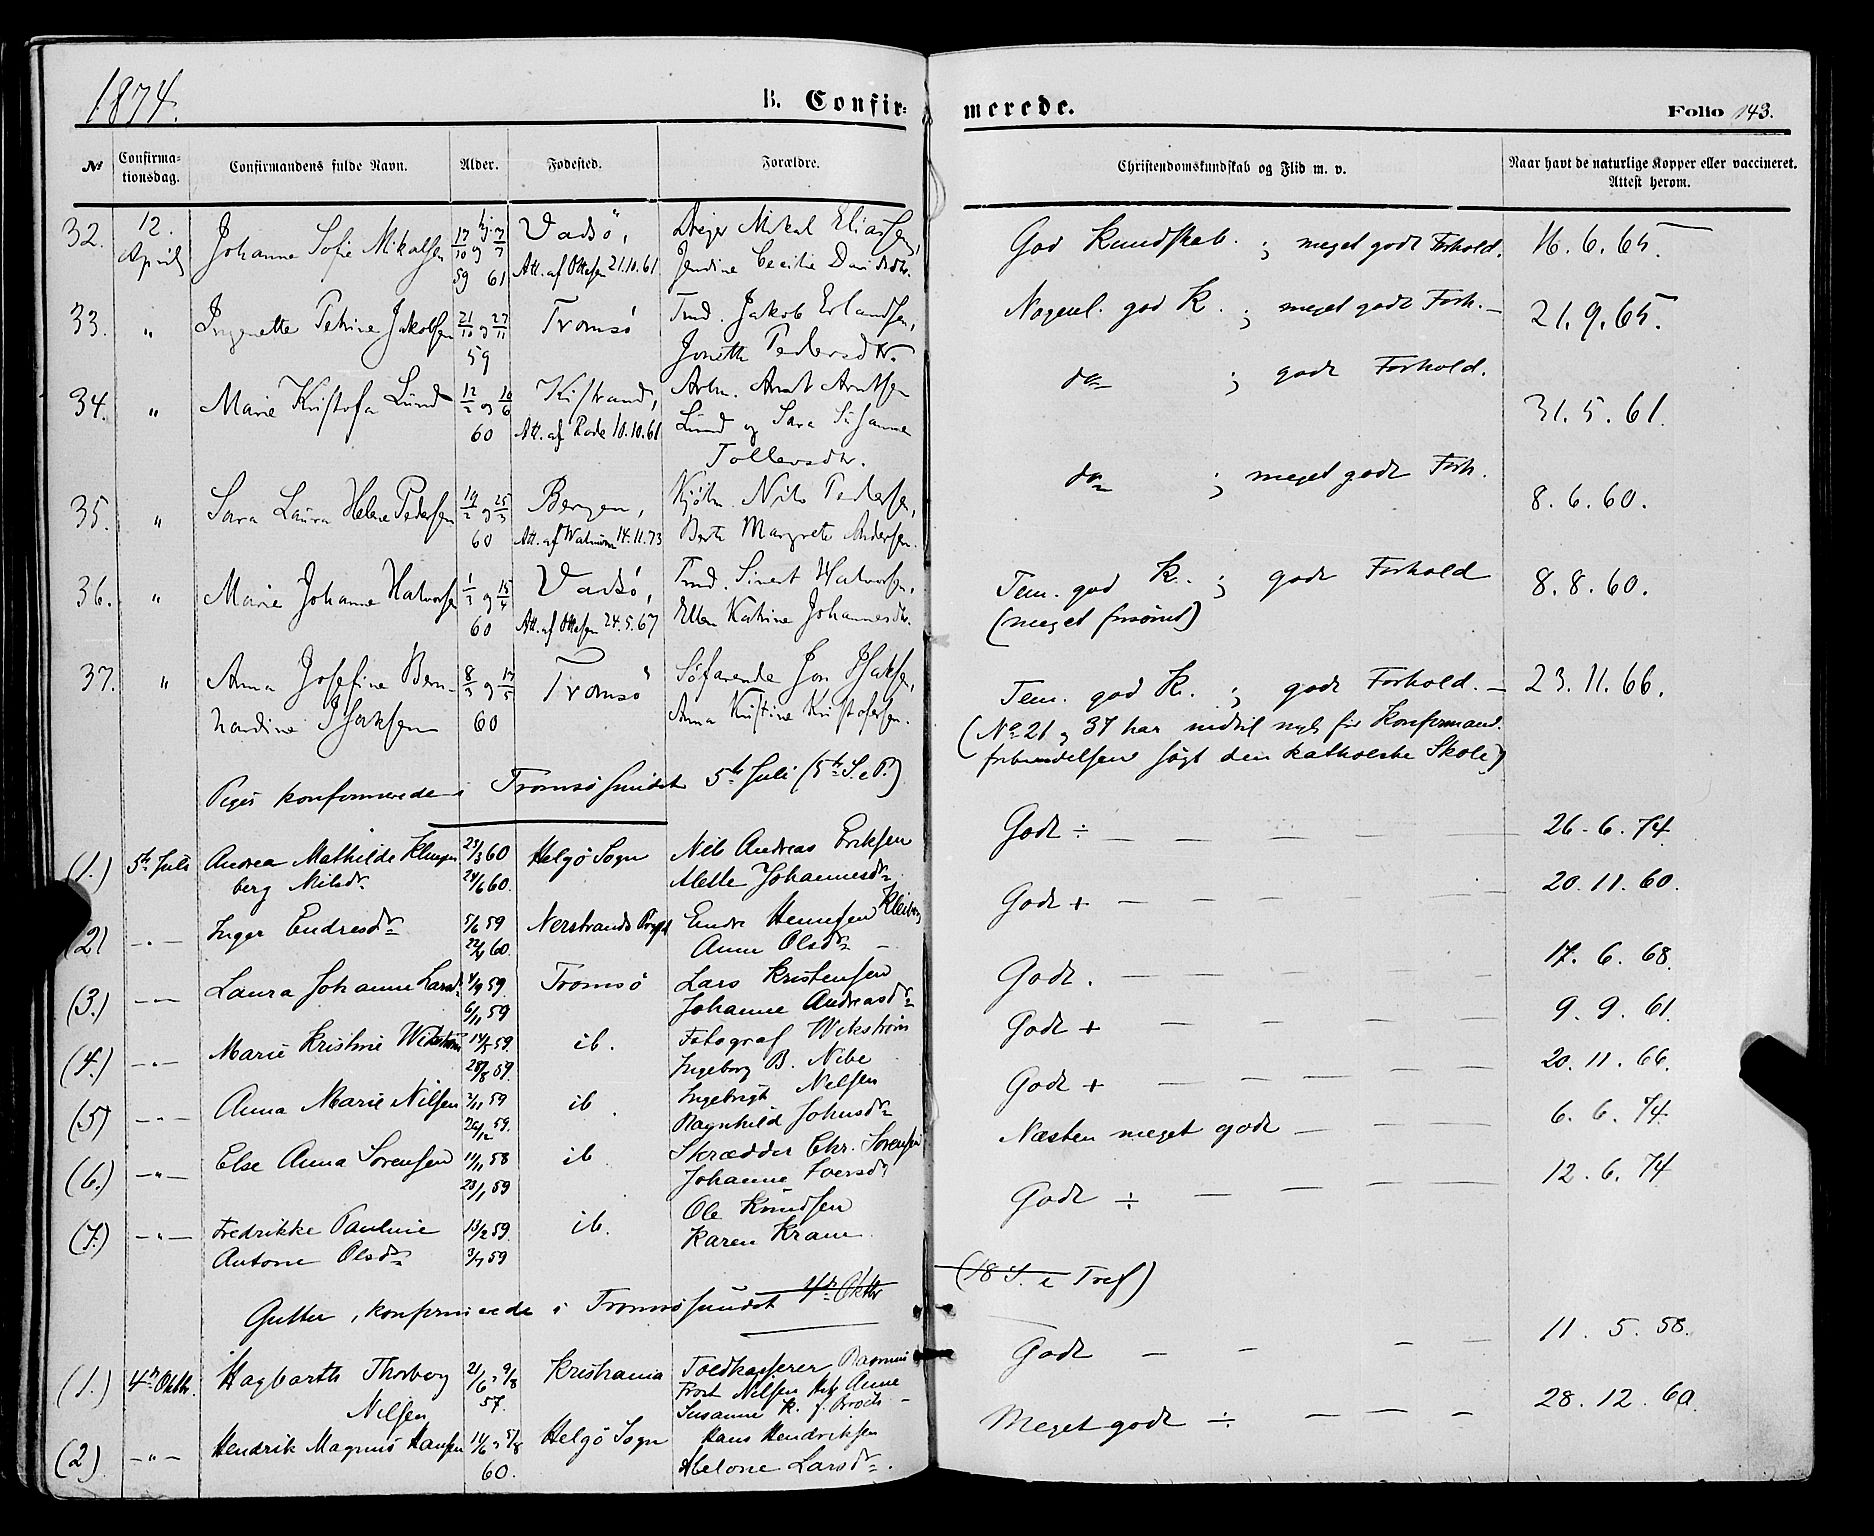 1874.
B. Confir-
merede.
Folio 143.
No
Confirma-
tionsdag.
Confirmandens fulde Navn.
Alder.
Fødested.
Forældre.
Christendomskundskab og Flid m. v.
Naar havt de naturlige Kopper eller vaccineret.
Attest herom.
32. 12. April Johanne Sofie Mikalsen Vadsö,
59 61 Att. af Ottesen 21.10.61
Mikal Eliassen,
Jendine Cecilie Davidsdtr.
God Kundskab. ; meget godt Forhold. 16.6.65.
33. " Ingenette Petrine Jakobsen 21/10 og 27/11 59 Tromsö
Tmd. Jakob Erlandsen,
Jonette Pedersdtr.
Nogenl. god K. ; meget godt Forh. 21.9.65.
34. " Marie Kristofa Lund 12/2 og 10/6 60 Kistrand,
Att. af Rode 10.10.61
Arbm. Arnt Arntsen
Lund og Sara Susanna
Tollevsdtr.
do ; godt Forhold. 31.5.61.
35. " Sara Laura Helene Pedersen 19/2 og 25/3 60 Bergen,
Att. af 14.11.73
Kjøbm. Nils Pedersen,
Berte Margrete Andersen.
do ; meget godt Forh. 8.6.60.
36. " Marie Johanne Halvorsen 60 Vadsö,
Att. af Ottesen 24.5.67
Tmd. Sivert Halvorsen,
Ellen Katrine Johannesdtr.
Tem. god K. ; godt Forhold 8.8.60.
(meget forsömt)
37. " Anna Josefine Bern-
hardine Isaksen 8/3 og 17/5 60 Tromsö
Söfarende Jon Isaksen,
Anna Kristine Kristofersen.
Tem. god K. ; godt Forhold. 23.11.66.
(No 21 og 37 har indtil nyl. för Konfirmand-
forberedelsen sögt den katholske Skole)
Piger konfirmerede i Tromsösundet 5te Juli (5te S. e P.)
(1.) 5te Juli Andrea Mathilde Klingen-
berg Nilsdr 27/3 60 24/6 60. Helgö Sogn
Nils Andreas Eriksen
Mette Johannesdr
Godt ÷ 26.6.74
(2) " Inger Endresdr 5/6 59 22/4 60. Nerstrands Prgd
Endre Hennsen Kleiberg
Anne Olsdr
Godt + 20.11.60.
(3.) " Laura Johanne Larsdr 4/9 59. 6/11 59 Tromsö
Lars Kristensen
Johanne Andreasdr
Godt. 17.6.68.
(4.) " Marie Kristine Wikström 14/5 59. 28/8 59. ib.
Fotograf Wikström
Ingeborg B. Nibe
Godt + 9.9.61.
(5) " Anna Marie Nilsen 2/11 59 26/12 59. ib.
Ingebrigt Nilsen
Ragnhild Johnsdr
Godt + 20.11.66.
(6.) " Else Anna Sörensen 11/11 58 23/1 59 ib.
Skrædder Chr. Sörensen
Johanne Iversdr
Næsten meget godt 6.6.74.
(7.) " Fredrikke Pauline
Antone Olsdr 13/2 59. 3/7 59 ib.
Ole Knudsen
Karen Krane
Godt ÷ 12.6.74
Gutter, konfirmerede i Tromsösundet 4de Oktbr
(18 S. e Tref)
(1.) 4de Oktbr. Hagbarth Thorberg
Nilsen 21/6 9/8 57. Kristiania
Toldkasserer Rasmus
Frost Nilsen Anne
Susanne K. f. Broch
Godt 11.5.58.
(2.) " Hendrik Magnus Hansen 11/6 5/8 60. Helgö Sogn
Hans Hendriksen
Larsdr.
Meget godt ÷ 28.12.60.